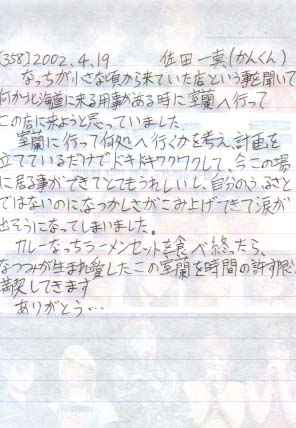 [358] 2002.4.19 佐田一真(かんくん)
なっちが小さな頃から来ていた店という事を聞いて
何か北海道に来る用事がある時に室蘭へ行って
この店に来ようと思っていました.
室蘭に行って何処へ行くかを考え、計画を
立てているだけでドキドキワクワクして、今この場
に居る事ができてとてもうれしいし、自分のふるさと
ではないのに、なつかしさがこみ上げてきて涙が
出そうになってしまいました。
カレーなっちラーメンセットを食べ終ったら、
なつみが生まれ愛したこの室蘭を時間の許す限り
満喫してきます
ありがとう…